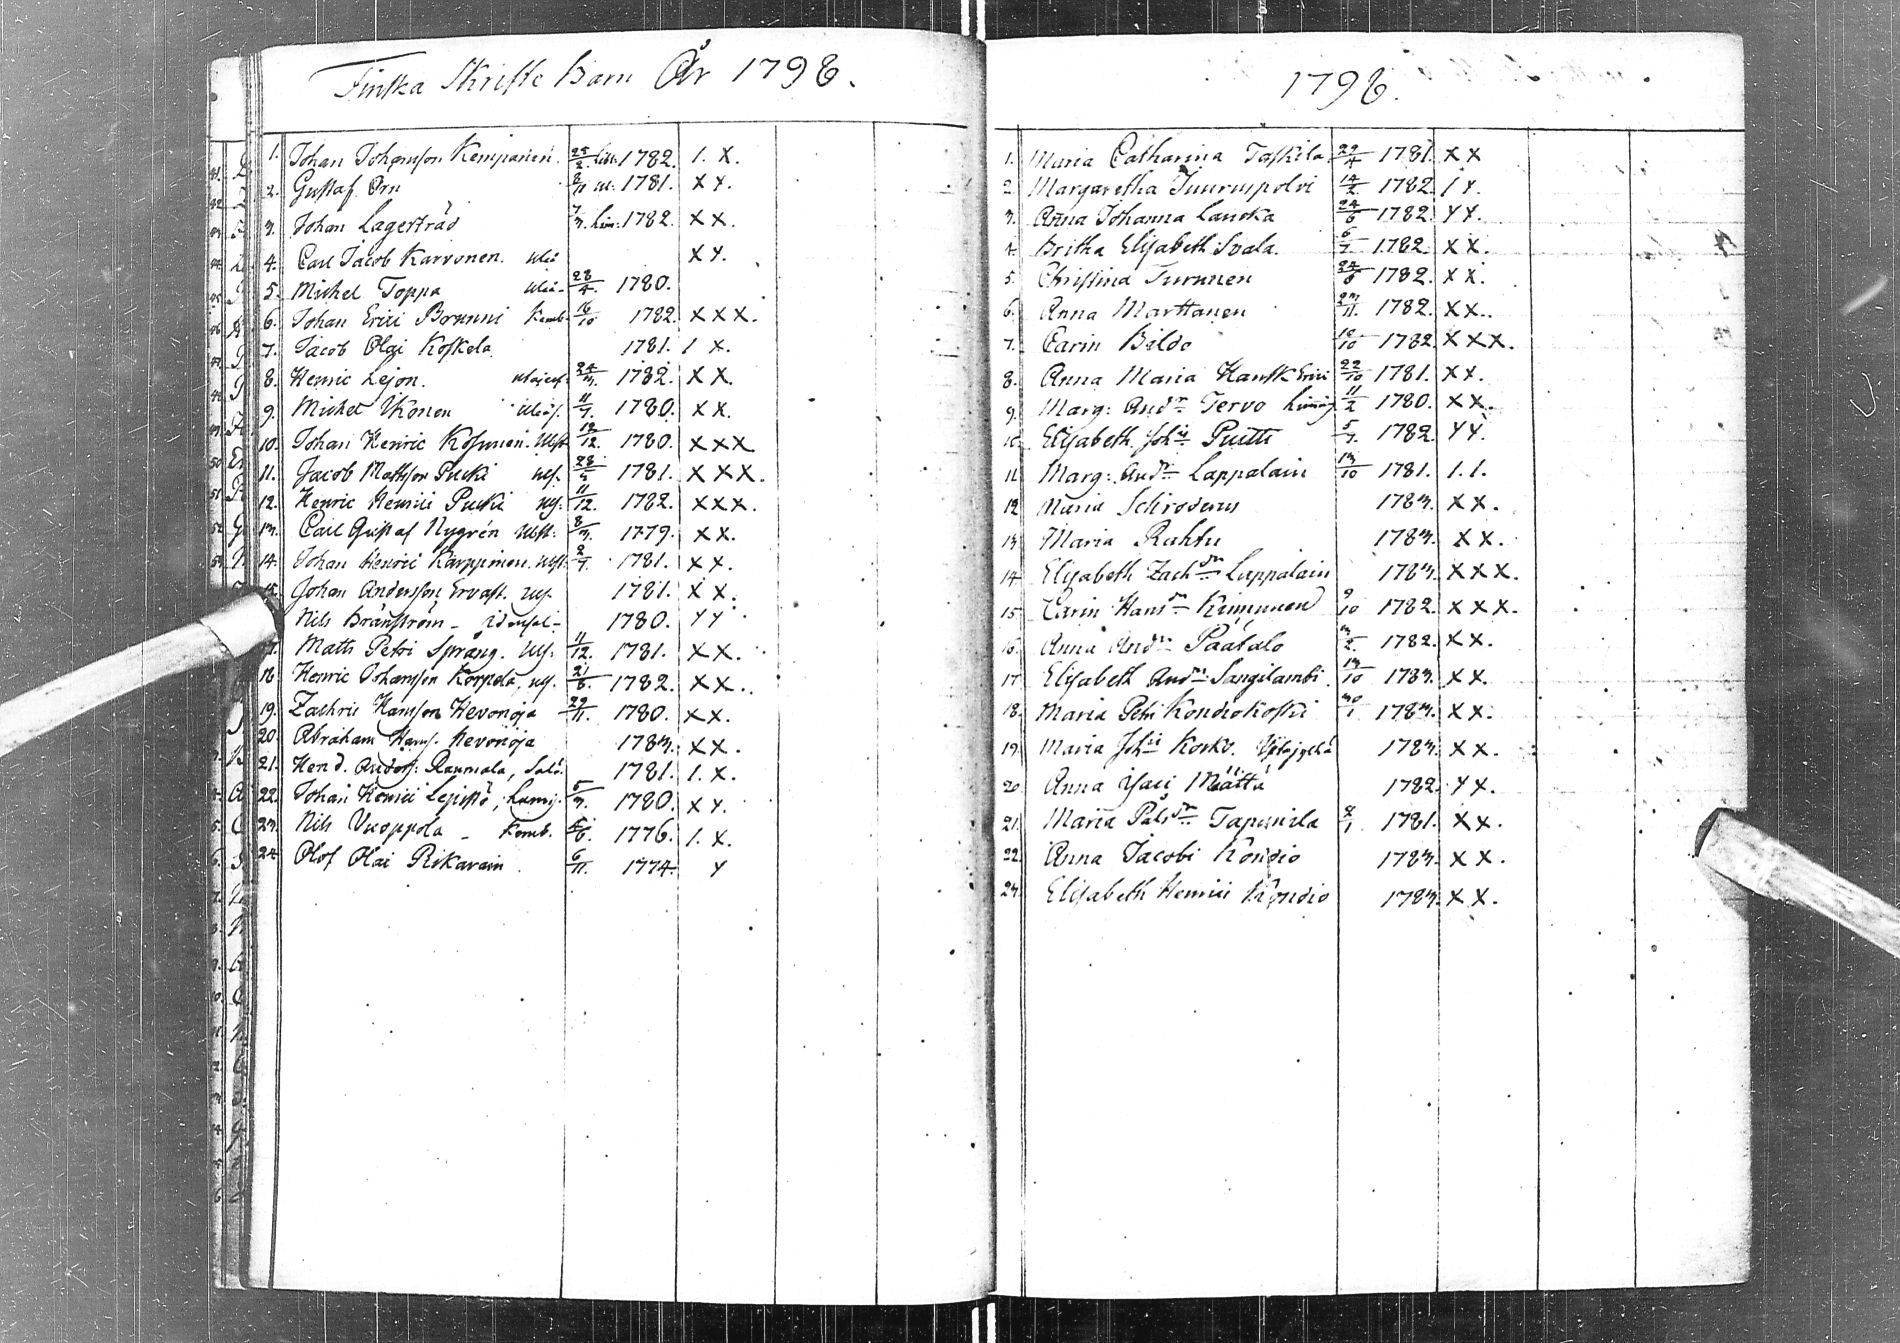 Finska Skrifte Barn År 1798.
1. Johan Johansson Kempainen. 25/2 Lim. 1782. 1. X.
2. Gustaf Örn 8/11 ul. 1781. X X.
3. Johan Lagerstråd 7/3. Lim. 1782. X X.
4. Carl Jacob Karvonen. Uleå X X.
5. Michel Toppa Uleå 28/4. 1780.
6. Johan Erici Borunni Kemb. 16/10 1782. X X X.
7. Jacob Olai Koskela 1781. 1 X.
8. Henric Lejon. 24/3. 1782. X X.
9. Michel Ikonen Uleås. 11/7. 1780. X X.
10. Johan Henric Kosunen. Ulst. 12/12. 1780. X X X
11. Jacob Mattsson Pucki uls. 28/2 1781. X X X.
12. Henric Henrici Pucki uls. 11/12. 1782. X X X.
13. Carl Gustaf Nygrén Ulst. 8/3. 1779. X X.
14. Johan Henrici Karppinen. Ulst. 2/7. 1781. X X.
Johan Andersson Ervast. uls. 1781. X X.
Nils Brånström 1780. X X
Matts Petri Språng. uls. 11/12. 1781. X X.
18 Henric Johansson Korpela, uls. 21/8. 1782. X X.
19. Zachris Hansson Hevonoja 29/11. 1780. X X.
20. Abraham Hans. Hevonoja 1783. X X.
21. Hend. Anders. Raumala, Salo. 1781. 1. X.
22. Johan Henrici Lepistö, Lumij. 5/3. 1780. X X.
23. Nils Vuoppola Kemb. 5/6. 1776. 1. X.
24 Olof Olai Pikarain 6/11. 1774. X
1798.
1. Maria Catharina Taskila 29/4 1781. X X
2. Margaretha Tuuruspolvi 14/2. 1782. 1 X.
3. Anna Johanna Lanska 24/6 1782. X X.
4. Britha Elisabeth Svala. 6/7. 1782. X X.
5. Christina Turunen 24/8 1782. X X.
6. Anna Marttanen 23/11. 1782. X X.
7. Carin Bildo 10/10 1782. X X X.
8. Anna Maria Hansk Erici 22/10 1781. X X.
9. Marg: And:dr Tervo Liming 11/2 1780. X X.
10. Elisabeth Joh:ii Puitti 5/7. 1782. X X.
11 Marg: And:dr Lappalain 13/10 1781. 1. 1.
12 Maria Schroderus 1783. X X.
13 Maria Rahtu 1783. X X.
14 Elisabeth Zach:dr Lappalain 1783. X X X.
15 Carin Hans:dr Kinnunen 9/10 1782. X X X.
16. Anna And:dr Paatalo 3/2. 1782. X X.
17 Elisabeth And:dr Sangilambi. 13/10 1783. X X.
18. Maria Petri Kondiokoski 30/1 1783. X X.
19. Maria Joh:ii Korko. 1783. X X.
20 Anna Isaci Määttä 1782. X X.
21. Maria Påls:dr Tapanila 8/1 1781. X X.
22 Anna Jacobi Kondio 1783. X X.
23. Elisabeth Henrici Kondio 1783. X X.